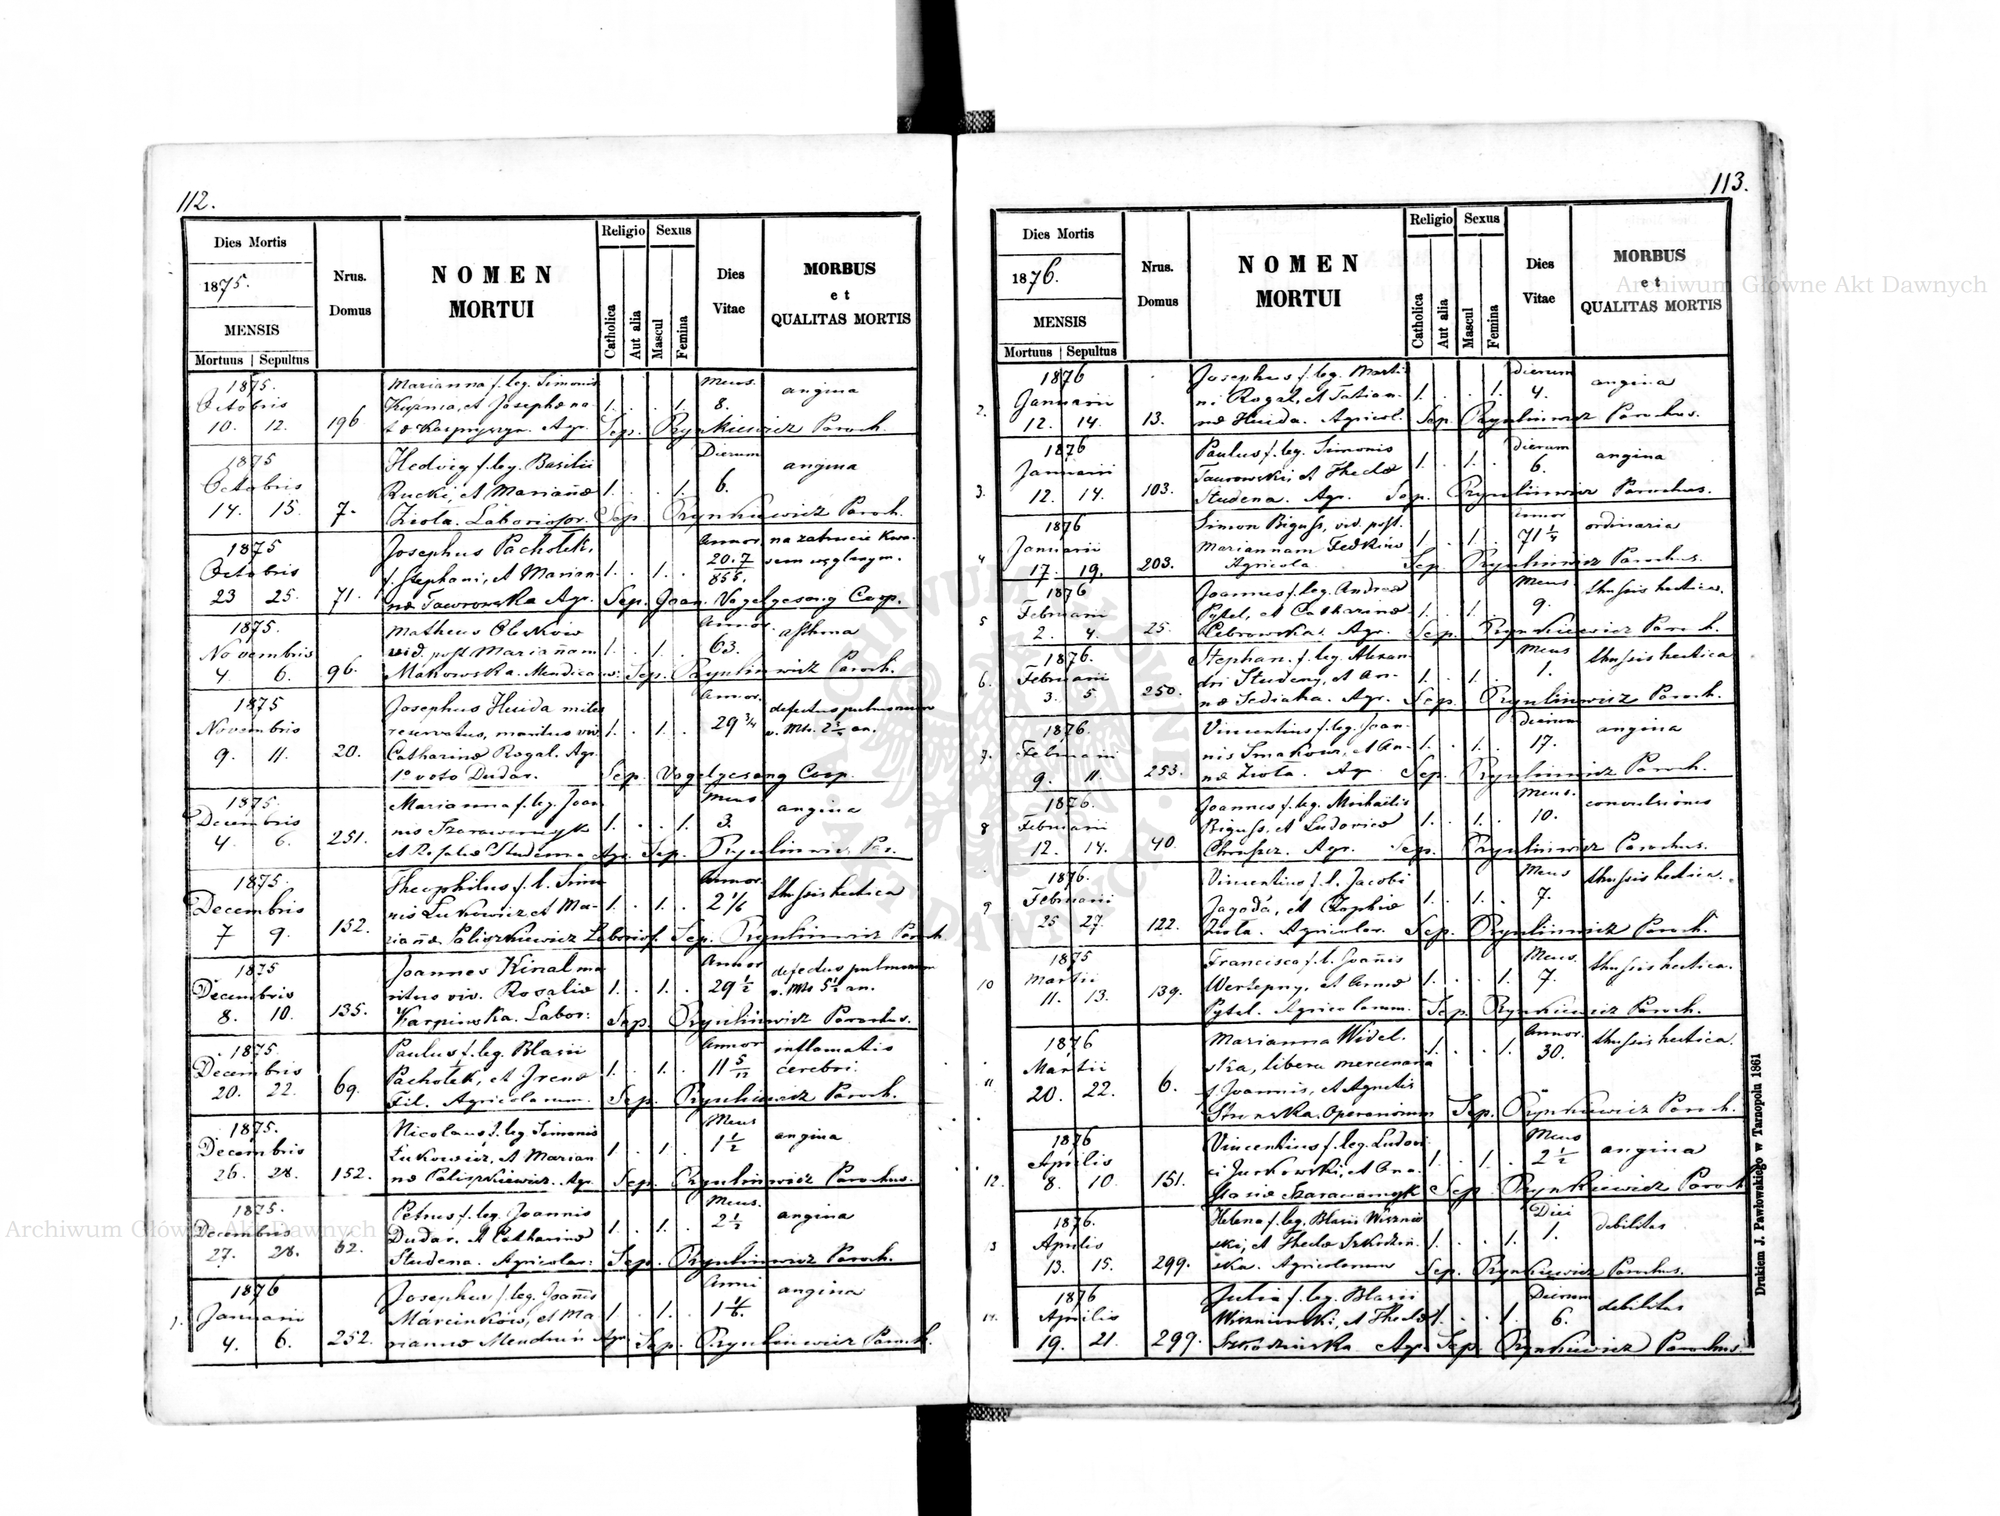 112.
Dies Mortis
1875.
MENSIS
Mortuus | Sepultus
Nrus.
Domus
NOMEN
MORTUI
Religio
Catholica
Aut alia
Sexus
Mascul
Femina
Dies
Vitae
MORBUS
et
QUALITAS MORTIS
1875.
Octobris
10. 12.
196
Marianna f. leg. Simonis
Kuźnia, et Josephæ na-
1. . . 1.
Mens.
8.
angina
Sep. Rynkiewicz Paroch.
1875
Octobris
14. 15.
7.
Hedvig f. leg. Basilii
Rucki, et Mariañæ
Zioła. Laborios.
1. . . 1.
Dierum
6.
angina
Sep. Rynkiewicz Paroch.
1875
Octobris
23 25.
71.
Josephus Pacholek,
f. Stephani, et Marian-
næ Taurowska Agr.
1. . 1. .
Annor.
20. 7
na zatrucie kwa-
sem węglanym.
Sep. Joan. Vogelgesang Coop.
1875.
Novembris
4. 6.
96.
Matheus Oleskow
vid. post Mariañam
Makowska. Mendicans.
1. . 1. .
Annor.
63.
asthma
Sep. Rynkiewicz Paroch.
1875
Novembris
9. 11.
20.
Josephus Huida miles
reservatus, maritus viv.
Catharinæ Rogal. Agr.
1º voto Dudar.
1. . 1. .
Annor.
29 3/4
defectus pulmonum
v. Mts. 2½ an.
Sep. Vogelgesang Coop.
1875.
Decembris
4. 6.
251.
Marianna f. leg. Joan
nis Szarawarczyk
et Rosaliæ Studenna Agr.
1. . . 1.
Mens
3.
angina
Sep. Rynkiewicz Par.
1875.
Decembris
7 9.
152.
Theophilus f. l. Simo
nis Lukowicz et Ma-
riañæ Paliszkiewicz Laborios.
1. . 1. .
Annor.
2 1/6
thussis hectica
Sep. Rynkiewicz Paroch
1875
Decembris
8. 10.
135.
Joannes Kinal ma
ritus viv. Rosaliæ
Karpinska. Labor:
1. . 1. .
Annor
29 ½
defectus pulmonum
v. Mts 5½ an.
Sep. Rynkiewicz Parochus.
1875.
Decembris
20. 22.
69.
Paulus f. leg. Blasii
Pacholek, et Irenæ
Fil. Agricolarum.
1. . 1. .
Annor
11 5/12
inflamatis
cerebri.
Sep. Rynkiewicz Paroch.
1875.
Decembris
26. 28.
152.
Nicolaus f. leg. Simonis
Łukowicz, et Marian
næ Paliszkiewicz. Agr.
1. . 1. .
Mens
1 ½
angina
Sep. Rynkiewicz Parochus.
1875.
Decembris
27. 28.
62.
Petrus f. leg. Joannis
Dudar. et Catharinæ
Studena. Agricolar:
1. . 1. .
Mens.
2 ½
angina
Sep. Rynkiewicz Paroch.
1.
1876
Januarii
4. 6.
252.
Josephus f. leg. Joañis
Marcinkow, et Ma
riannæ Mendrun Agr.
1. . 1. .
Anni
1 1/6.
angina
Sep. Rynkiewicz Paroch.
113.
Dies Mortis
1876.
MENSIS
Mortuus | Sepultus
Nrus.
Domus
NOMEN
MORTUI
Religio
Catholica
Aut alia
Sexus
Mascul
Femina
Dies
Vitae
MORBUS
et
QUALITAS MORTIS
2.
1876
Januarii
12. 14.
13.
Josephus f. leg. Marti-
ni Rogal, et Tatian-
næ Huida. Agricol.
1. . . 1.
Dierum
4.
angina
Sep Rynkiewicz Parochus.
3.
1876
Januarii
12. 14.
103.
Paulus f. leg. Simonis
Taurowski, et Theclæ
Studena. Agr.
1. . 1. .
Dierum
6.
angina
Sep. Rynkiewicz Parochus.
4
1876
Januarii
17. 19.
203.
Simon Biguss, vid. post.
Mariannam Fedkiw
Agricola
1. . 1. .
Annor
71 ¼
ordinaria
Sep. Rynkiewicz Parochus.
5
1876
Februarii
2. 4.
25.
Joannes f. leg. Andreæ
Pytel, et Catharinæ
Cebrowska. Agr.
1. . 1. .
Mens
9.
thussis hectica.
Sep. Rynkiewicz Paroch.
6.
1876.
Februarii
3. 5
250.
Stephan. f. leg. Alexan-
dri Studeny, et An-
næ Fediaka. Agr.
1. . 1. .
Mens
1.
thussis hectica
Sep. Rynkiewicz Paroch.
7.
1876.
Februarii
9. 11.
253.
Vincentius f. leg. Joan-
nis Smakow, et An-
næ Zioła. Agr.
1. . 1. .
Dierum
17.
angina
Sep. Rynkiewicz Paroch.
8
1876.
Februarii
12. 14.
40.
Joannes f. leg. Michaëlis
Biguss, et Ludovicæ
Agr.
1. . 1. .
Mens.
10.
convulsiones
Sep. Rynkiewicz Parochus.
9
1876.
Februarii
25 27.
122.
Vincentius f. l. Jacobi
Jagoda, et Zophiæ
Zioła. Agricolar.
1. . 1. .
Mens
7.
thussis hectica.
Sep. Rynkiewicz Paroch.
10
1875
Martii
11. 13.
139.
Francisca f. l. Joañis
Werzepny, et Annæ
Pytel. Agricolarum.
1. . . 1.
Mens.
7.
thussis hectica.
Sep. Rynkiewicz Paroch.
11
1876
Martii
20. 22.
6.
Marianna Widel.
ska, libera mercenaria
f. Joannis, et Agnetis
Operariorum
1. . . 1.
Annor.
30.
thussis hectica.
Sep. Rynkiewicz Paroch.
12.
1876
Aprilis
8. 10.
151.
Vincentius f. leg. Ludovi
ci Jurkowski, et Ana.
stasiæ Szarawarczyk
1. . 1. .
Mens
2 ½
angina
Sep. Rynkiewicz Paroch
3
1876.
Aprilis
13. 15.
299.
Helena f. leg. Blasii Wiśznio
ski, et Theclæ Szkodzin.
ska. Agricolarum
1. . . 1.
Diei
1.
debilitas
Sep. Rynkiewicz Parochus.
14.
1876
Aprilis
19. 21.
299.
Julia f. leg. Blasii
Wiszniowski, et Theclæ
Szkodzinska. Agr.
1. . . 1.
Dierum
6.
debilitas
Sep. Rynkiewicz Parochus.
Drukiem J. Pawłowskiego w Tarnopolu 1861
Archiwum Główne Akt Dawnych
Archiwum Główne Akt Dawnych
ARCHIWUM GŁÓWNE AKT DAWNYCH